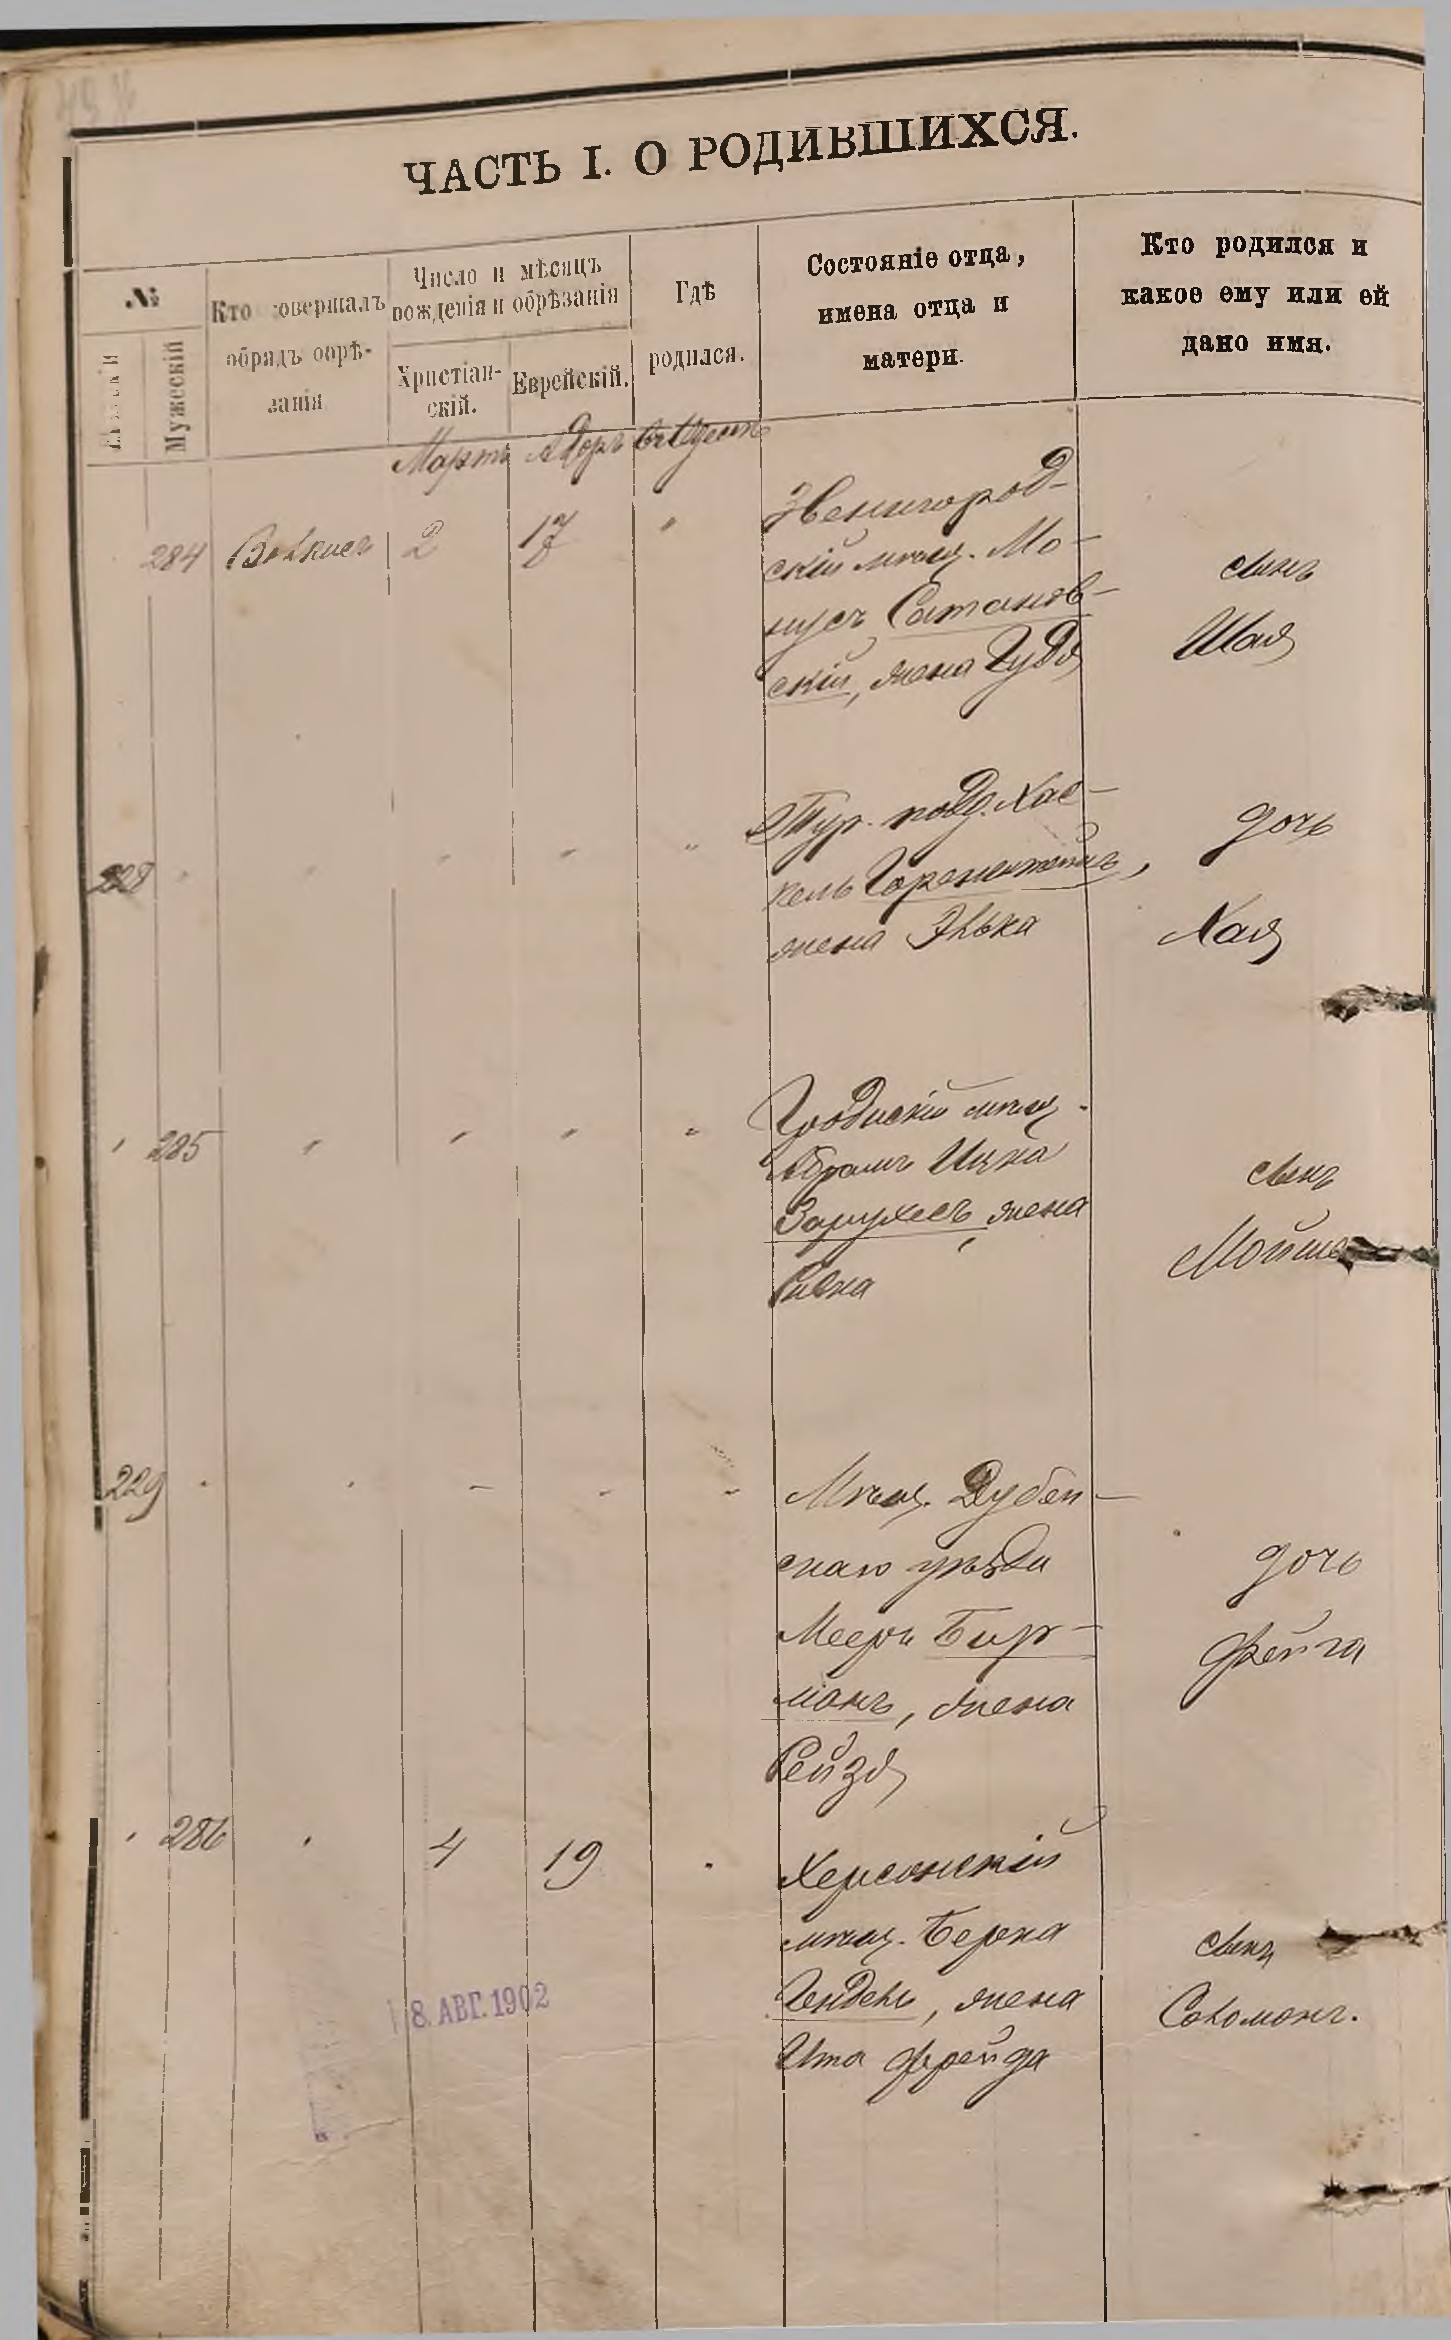 ЧАСТЬ I. О РОДИВШИХСЯ.
№
Мужескій
Кто совершалъ
обрядъ обрѣ-
занія
Число и мѣсяцъ
рожденія и обрѣзанія
Христіан-
скій.
Еврейскій.
Гдѣ
родился.
Состояніе отца,
имена отца и
матери.
Кто родился и
какое ему или ей
дано имя.
Мартъ Адоръ
284 2 17 "
Звенигород-
скій мѣщ. Мо-
нусъ Сатанов-
скій, жена Гудя
сынъ
Шая
228 " " " " "
Тур. подд. Хас-
кель
жена Элька
дочь
Хая
" 285 " " " "
Гродискій мѣщ.
Абрамъ Ицка
Зарухесъ, жена
Ривка
сынъ
Мойше
229 " " " " "
Мѣщ. Дубен-
скаго уѣзда
Мееръ Бир-
манъ, жена
Рейзя
дочь
Фейга
" 286 " 4 19 "
Херсонскій
мѣщ. Берка
Гендель, жена
Ита Фрейда
сынъ
Соломонъ.
8. АВГ. 1902